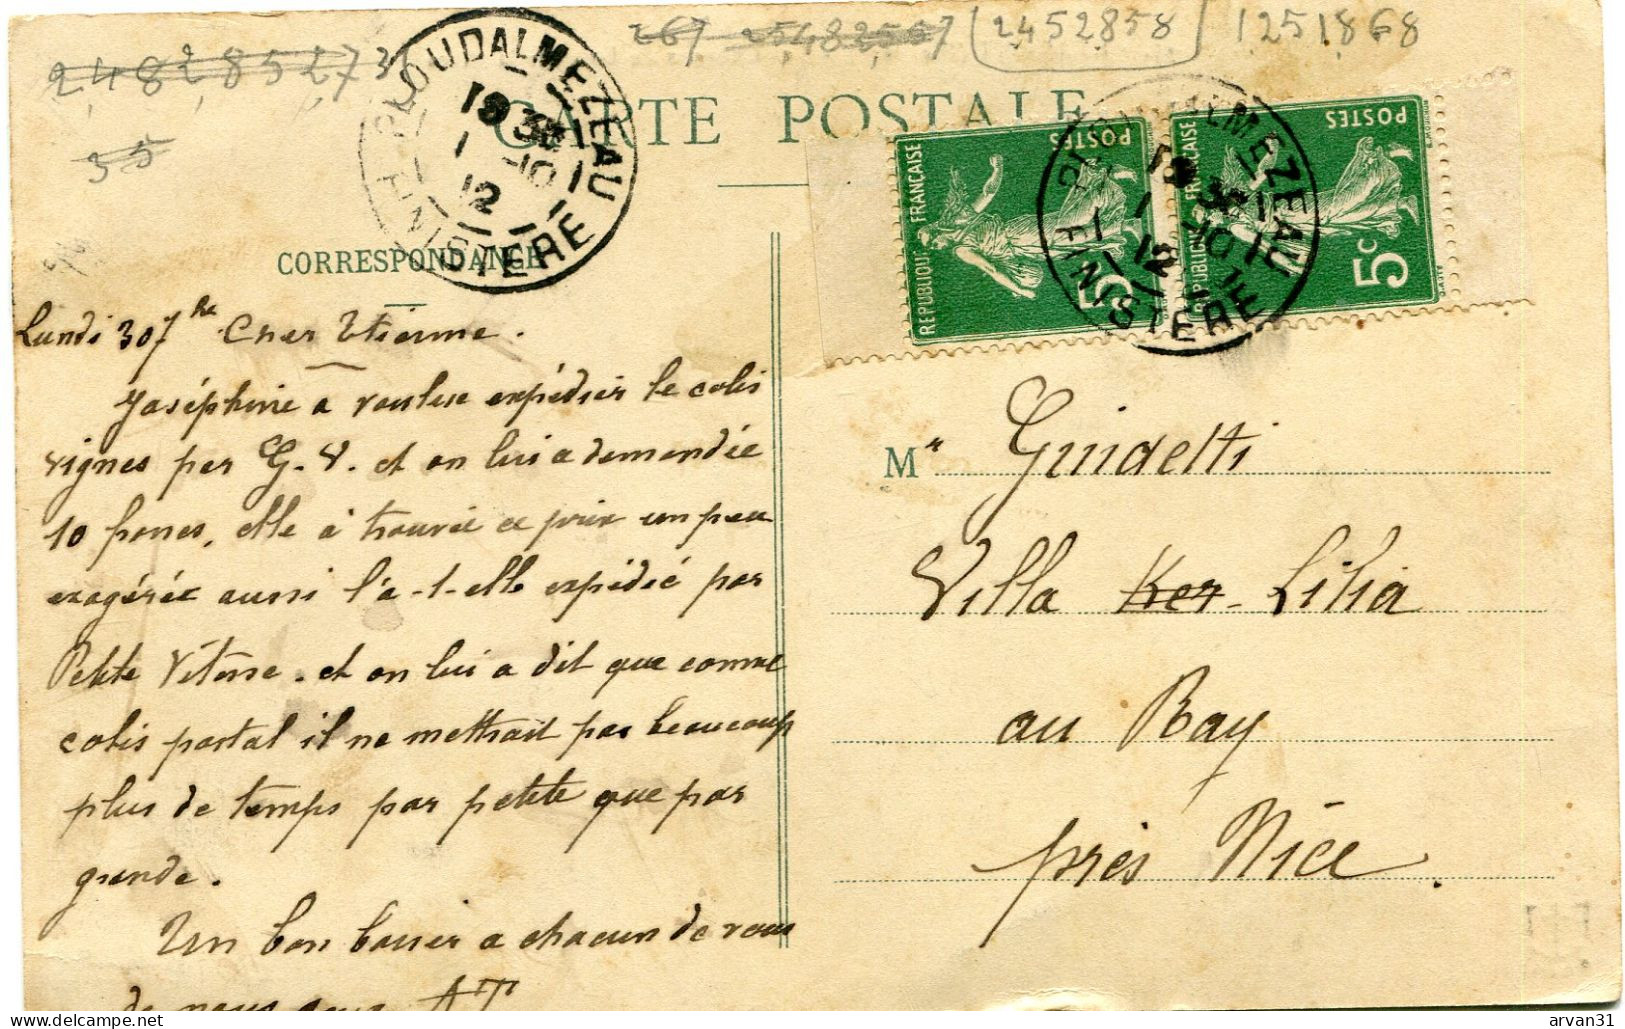 248285273
35
267 25482567 2452858 1251868
CARTE POSTALE
PLOUDALMEZEAU
19 31
1 -10
12
FINISTERE
POSTES
REPUBLIQUE FRANÇAISE
5c
POSTES
REPUBLIQUE FRANÇAISE
5c
CORRESPONDANCE
Lundi 30 7hre Cher Etienne.
Joséphine a voulue expédier le colis
vignes par G.V. et on lui a demandée
10 francs, elle à trouvée ce prix un peu
exagérée aussi l'a-t-elle expédié par
Petite Vitesse. et on lui a dit que comme
colis postal il ne mettrait pas beaucoup
plus de temps par petite que par
grande.
Un bon baiser a chacun de vous
de nous tous AT
Mr Guidetti
Villa Ker-Lilia
au Ray
près Nice.
arvan31